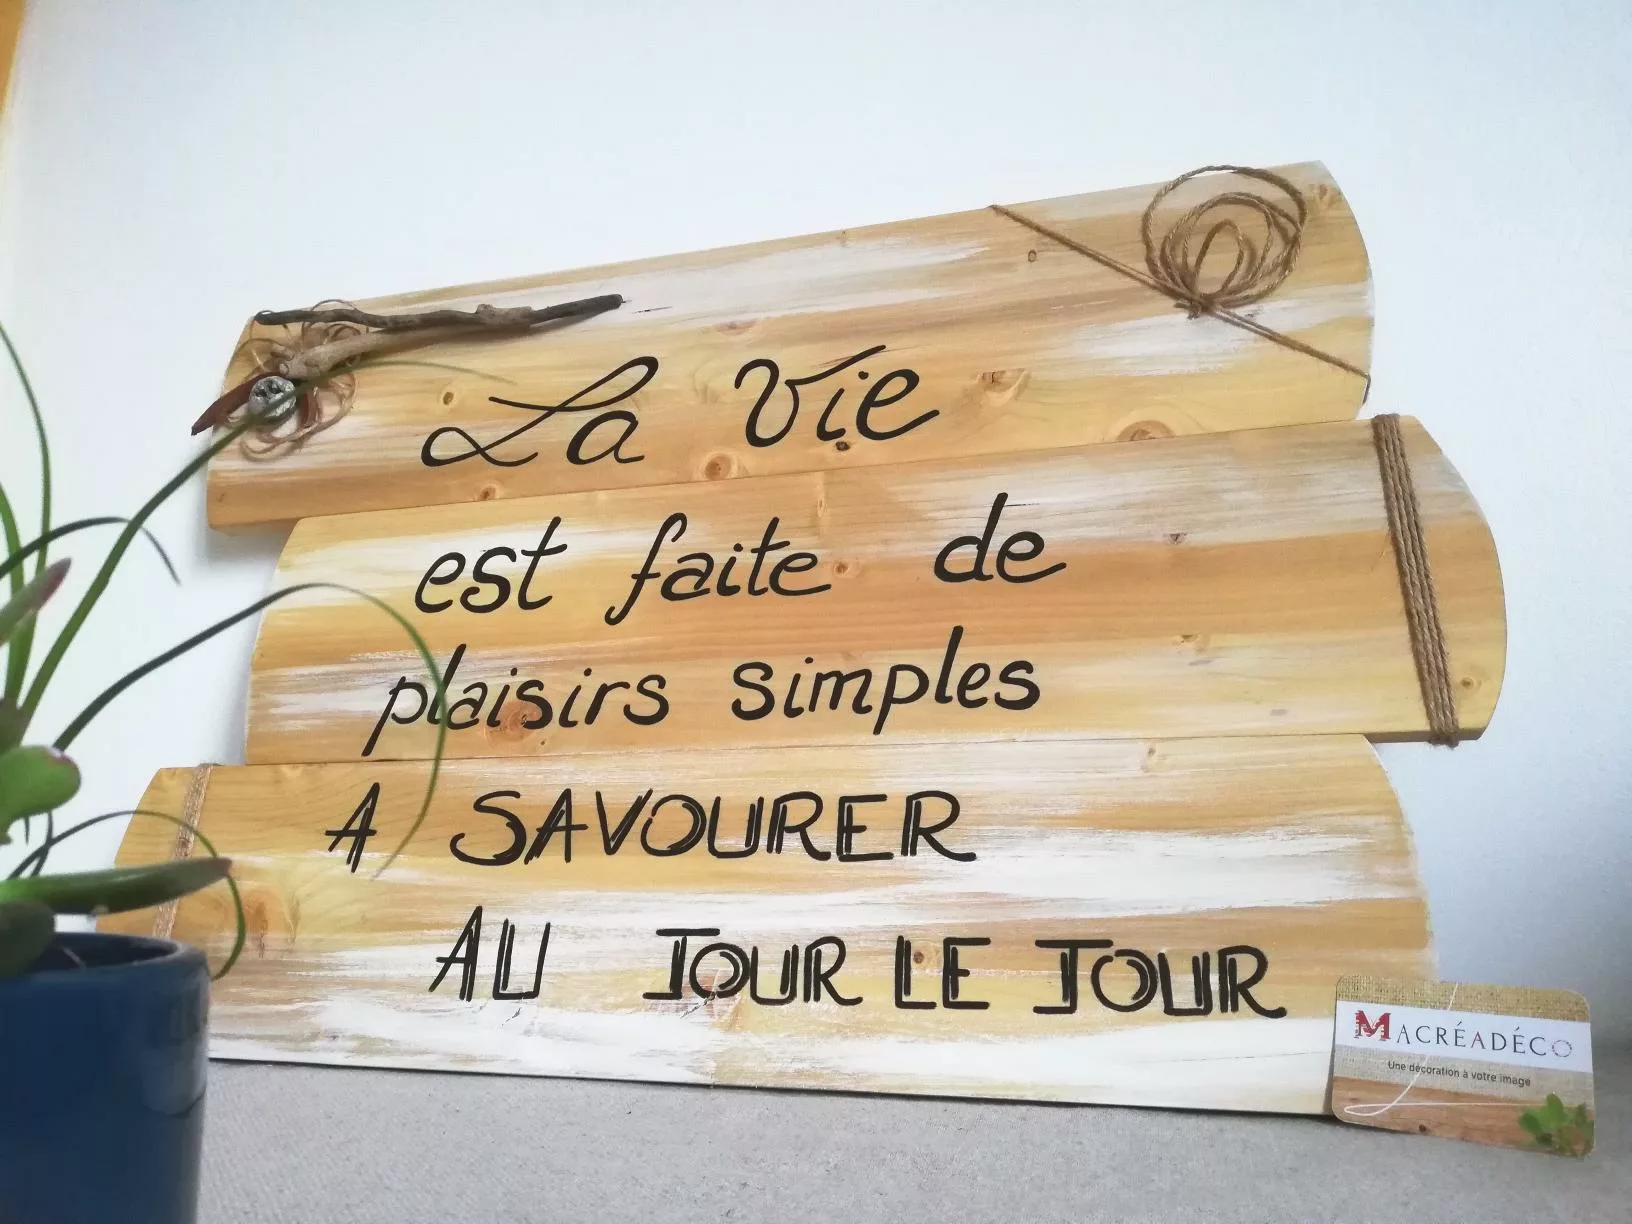 La Vie
est faite de
plaisirs simples
A SAVOURER
AU JOUR LE JOUR
MACRÉADÉCO
Une décoration à votre image